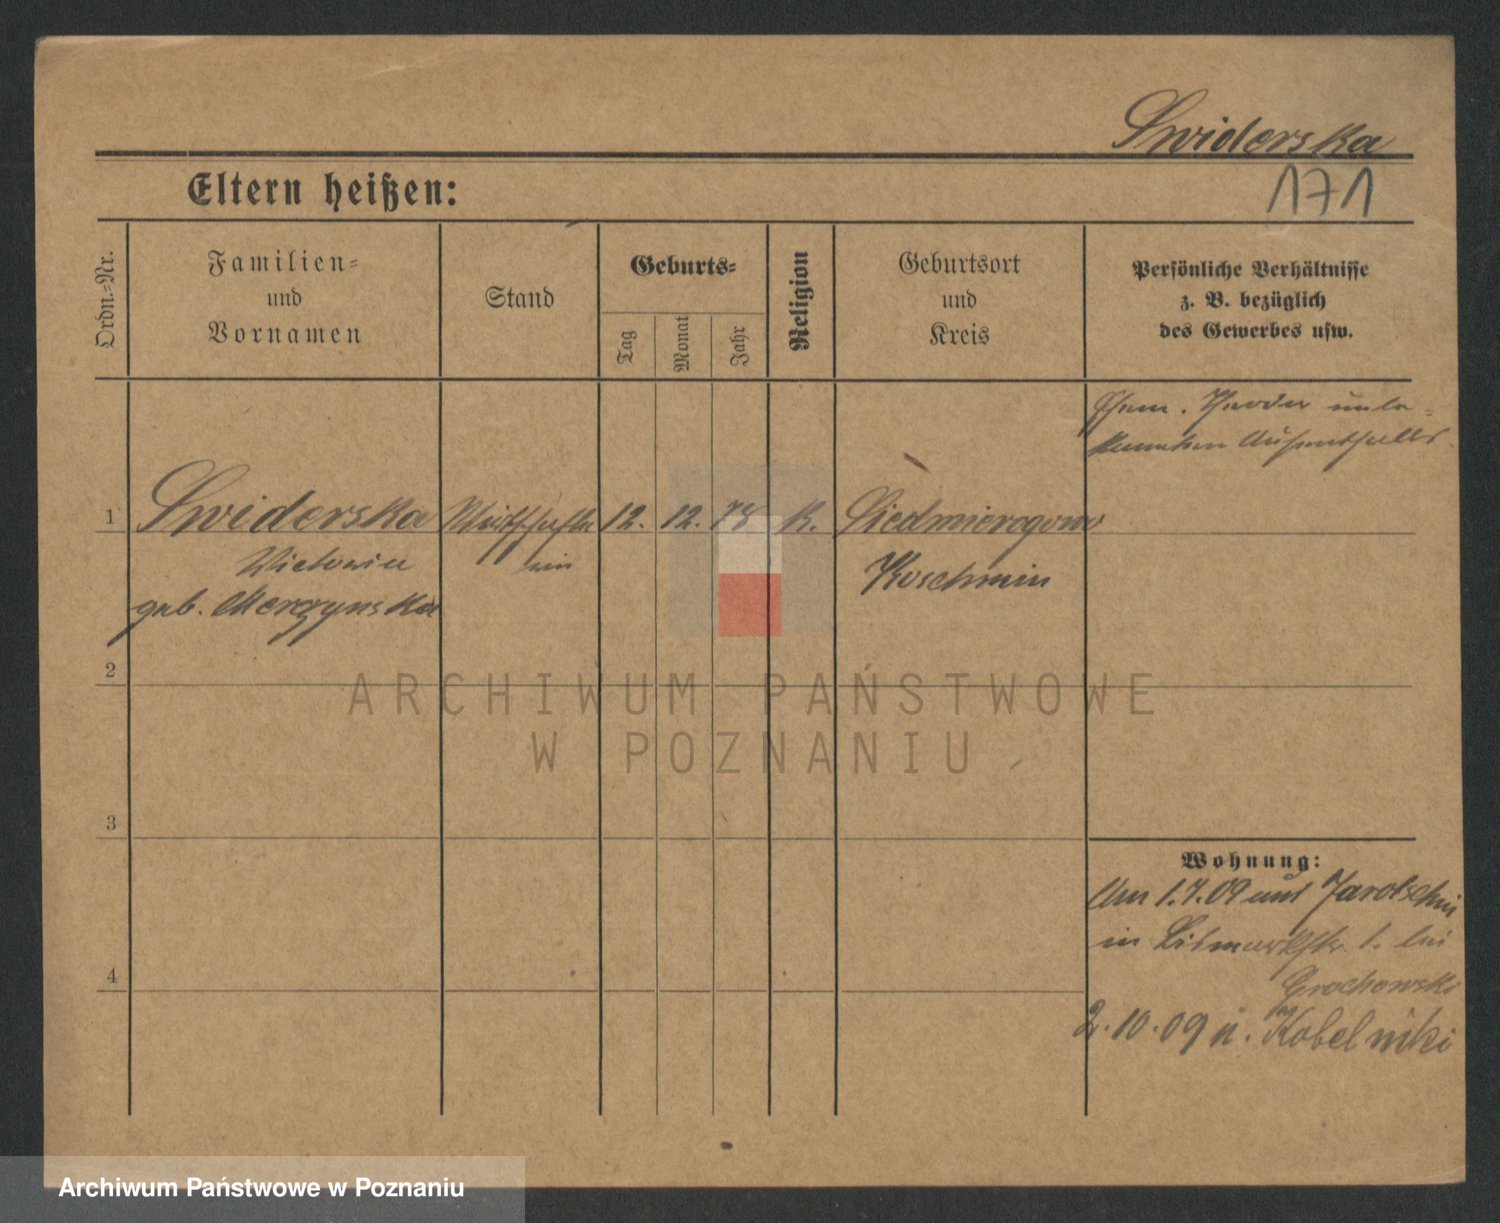 Swiderska
171
Eltern heißen:
Ordn.-Nr.
Familien-
und
Vornamen
Stand
Geburts-
Tag
Monat
Jahr
Religion
Geburtsort
und
Kreis
Persönliche Verhältnisse
z. B. bezüglich
des Gewerbes usw.
Ehem. Theodor unbe-
kannten Aufenthalts.
1
Swiderska
Wirthschafte
12.
12.
78
K.
Siedmierogowo
Victoria
rin
Koschmin
geb. Merzynska
2
ARCHIWUM PAŃSTWOWE
W POZNANIU
3
Wohnung:
Am 1.7.09 aus Jarotschin
in Bismarckstr. 1. bei
Grochowski
4
2.10.09 n. Kobelniki
Archiwum Państwowe w Poznaniu